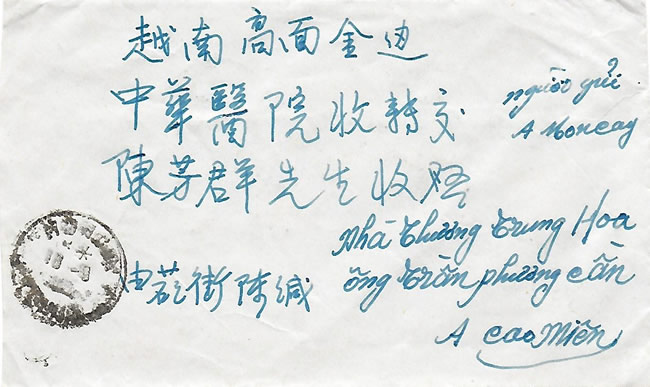 越南高面金边
中華醫院收轉交
陳芳群先生收啓
由芒街陳緘
người gửi
A Moncay
Nhà thương trung Hoa
ông trần phương cần
A cao Miên